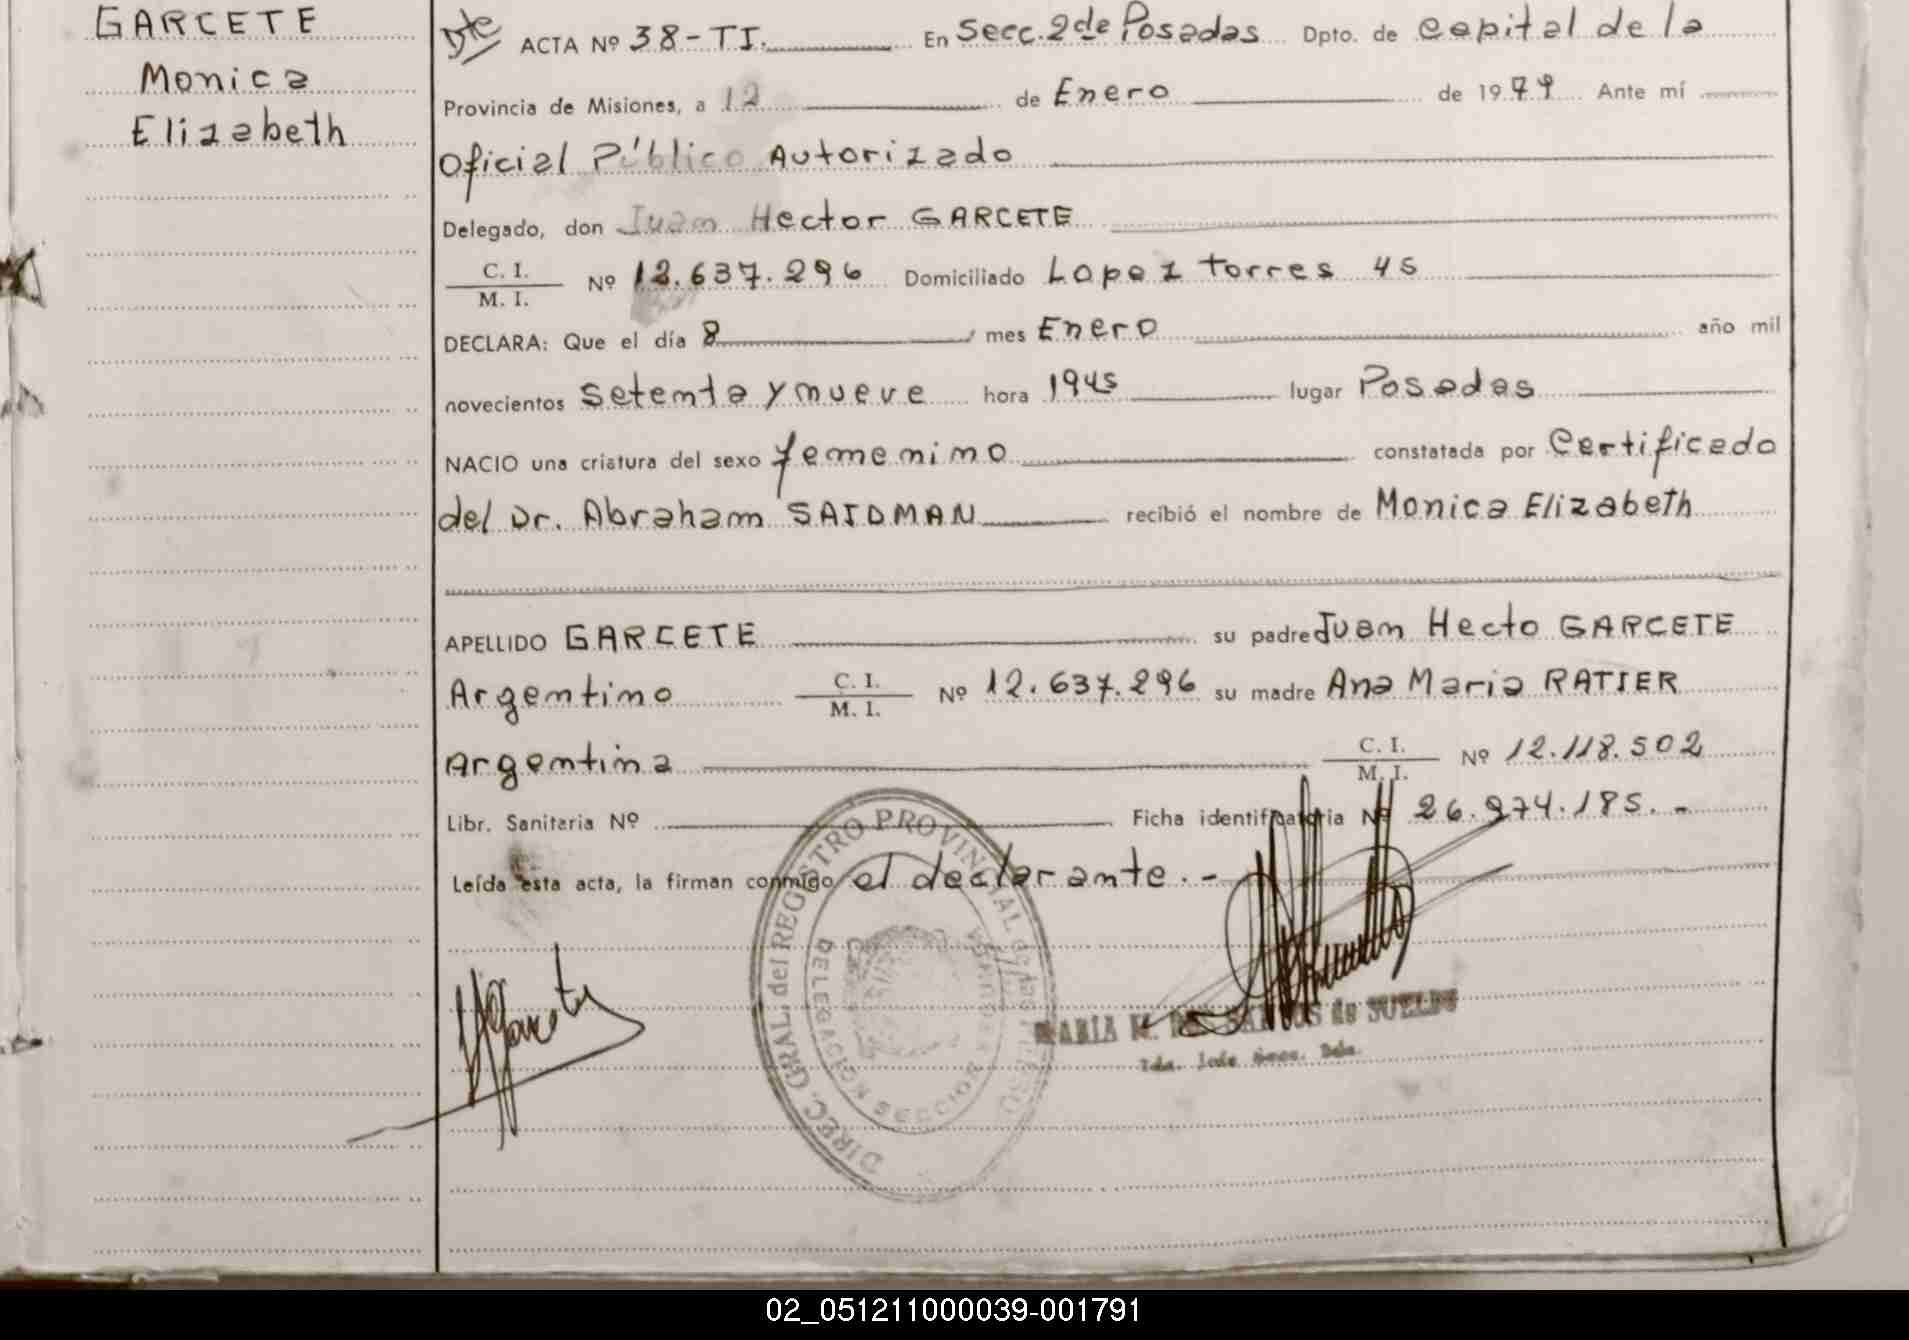 GARCETE
Monica
Elizabeth
Dte ACTA Nº 38-TI. En Secc. 2de Posadas Dpto. de Capital de la
Provincia de Misiones, a 12 de Enero de 1979 Ante mí
Oficial Público Autorizado
Delegado, don Juan Hector GARCETE
C. I.
M. I.
Nº 12.637.296 Domiciliado Lopez Torres 45
DECLARA: Que el día 8 mes Enero año mil
novecientos setenta y nueve hora 1945 lugar Posadas
NACIO una criatura del sexo femenino constatada por Certificado
del Dr. Abraham SAIDMAN recibió el nombre de Monica Elizabeth
APELLIDO GARCETE su padre Juan Hecto GARCETE
Argentino C. I. M. I. Nº 12.637.296 su madre Ana Maria RATIER
Argentina C. I. M. I. Nº 12.118.502
Libr. Sanitaria Nº Ficha identificatoria Nº 26.974.185.-
Leída esta acta, la firman conmigo el declarante.-
DIREC. GRAL. del REGISTRO PROVINCIAL de las
DELEGACION SECCION
MARIA M. DOS SANTOS de SUELDO
02_051211000039-001791